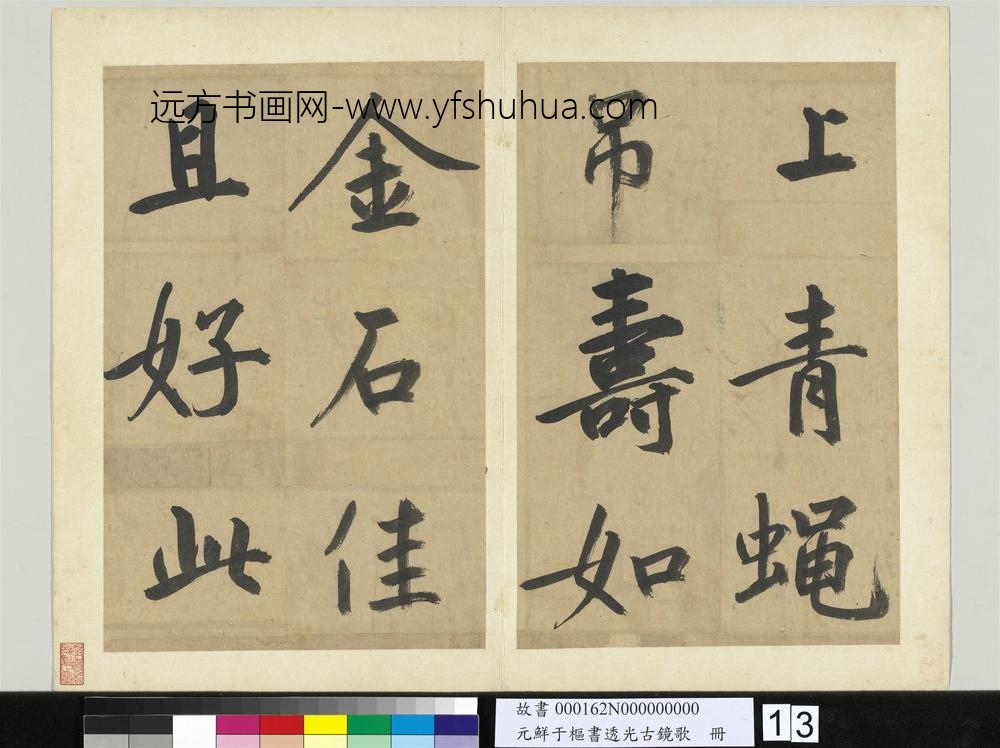 远方书画网-www.yfshuhua.com
上青蝇
吊壽如
金石佳
且好此
故書 000162N000000000
元鮮于樞書透光古鏡歌 冊
13